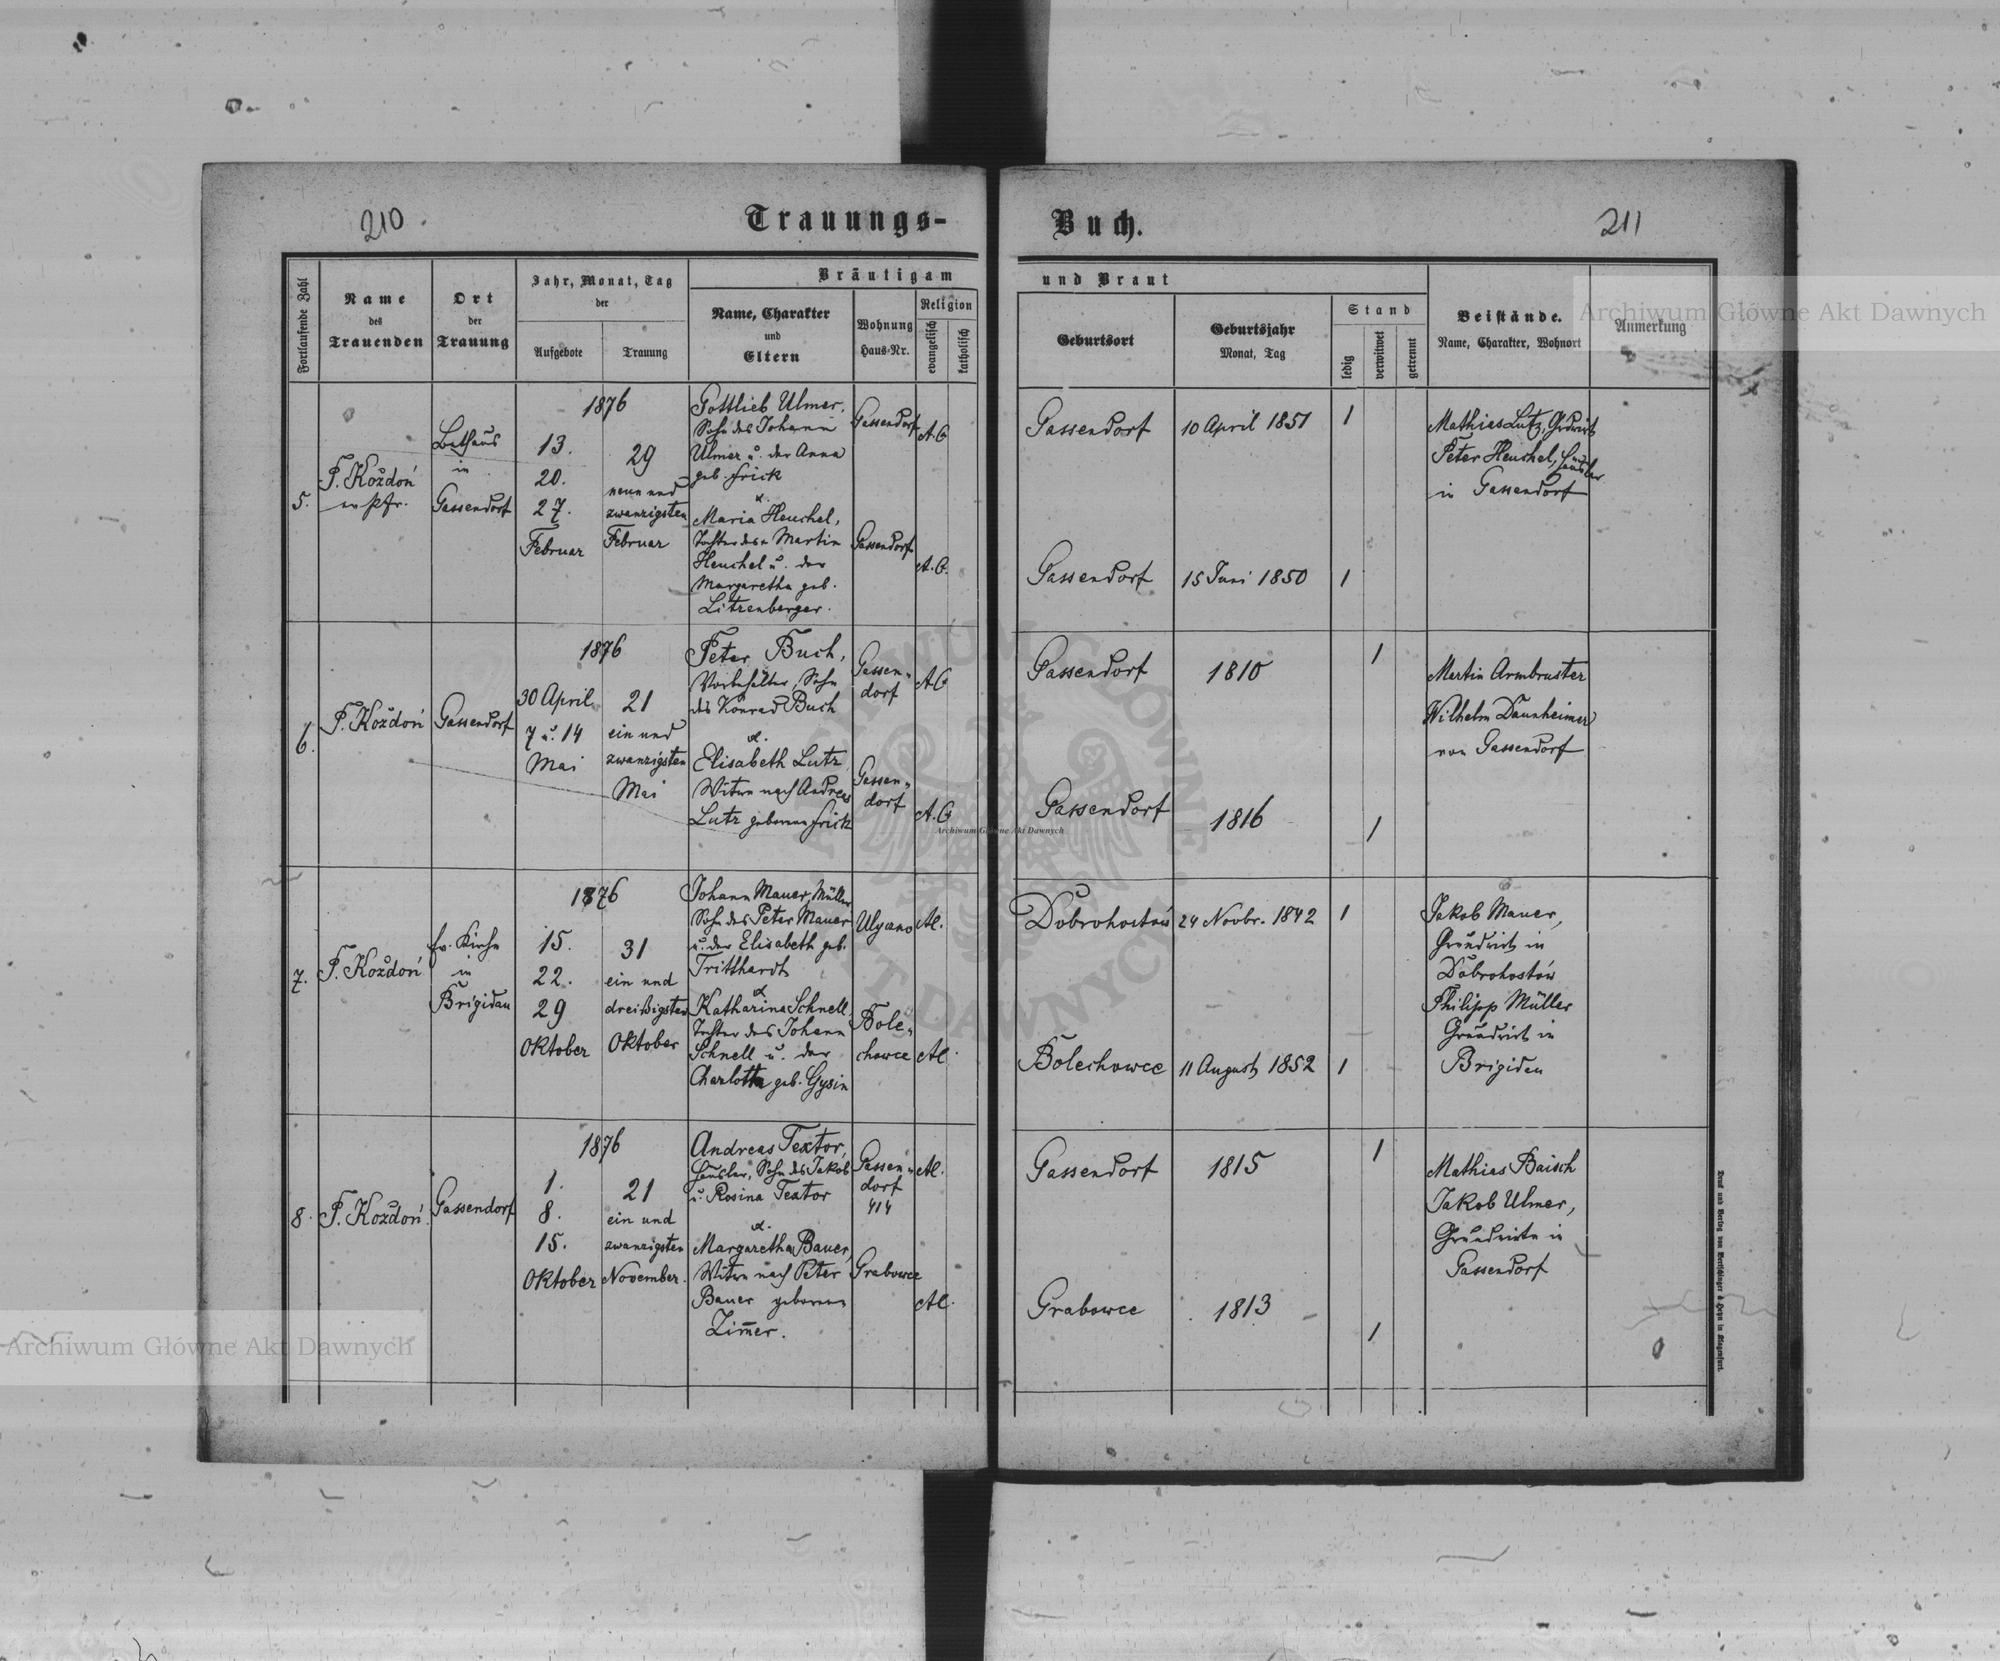 210.
Trauungs-
Buch.
211
Fortlaufende Zahl
Name
des
Trauenden
Ort
der
Trauung
Jahr, Monat, Tag
der
Aufgebote
Trauung
Bräutigam
Name, Charakter
und
Eltern
Wohnung
Haus-Nr.
Religion
evangelisch
katholisch
und Braut
Geburtsort
Geburtsjahr
Monat, Tag
Stand
ledig
verwitwet
getrennt
Beistände.
Name, Charakter, Wohnort
Anmerkung
5.
F. Kożdoń
ev. Pfr.
Bethaus
in
Gassendorf
1876
13.
20.
27.
Februar
29
neun und
zwanzigsten
Februar
Gottlieb Ulmer,
Sohn des Johann
Ulmer u. der Anna
geb. Frick
&
Maria Heuchel,
Tochter des Martin
Heuchel u. der
Margaretha geb.
Litzenberger.
Gassendorf
Gassendorf
A.C
A.C.
Gassendorf
10 April 1851
1
Gassendorf
15 Juni 1850
1
Mathias Lutz, Grdwirt
Peter Heuchel, Häusler
in Gassendorf
6.
F. Kożdoń
Gassendorf
1876
30 April
7 u. 14
Mai
21
ein und
zwanzigsten
Mai
Peter Buch,
Vorbehälter, Sohn
des Konrad Buch
&.
Elisabeth Lutz
Witwe nach Andreas
Lutz geborene Frick
Gassen-
dorf
Gassen-
dorf
A.C
A.C
Gassendorf
1810
1
Gassendorf
1816
1
Martin Armbruster
Wilhelm Daunheimer
von Gassendorf
7.
F. Kożdoń
Ev. Kirche
in
Brigidau
1876
15.
22.
29
Oktober
31
ein und
dreißigsten
Oktober
Johann Mauer, Müller
Sohn des Peter Mauer
u. der Elisabeth geb.
Tritthardt
&
Katharina Schnell,
Tochter des Johann
Schnell u. der
Charlotte geb. Gysin
Ulycano
Bole-
chowce
AC.
AC.
Dobrohostów
24 Novbr. 1842
1
Bolechowce
11 August 1852
1
Jakob Mauer,
Grundwirt in
Dobrohostów
Philipp Müller
Grundwirt in
Brigidau
8.
F. Kożdoń
Gassendorf
1876
1.
8.
15.
Oktober
21
ein und
zwanzigsten
November.
Andreas Textor,
Häusler, Sohn des Jakob
u. Rosina Textor
&.
Margaretha Bauer,
Witwe nach Peter
Bauer geborene
Zim̅er.
Gassen-
dorf
Grabowce
AC.
AC.
Gassendorf
1815
1
Grabowce
1813
1
Mathias Baisch
Jakob Ulmer,
Grundwirte in
Gassendorf
Archiwum Główne Akt Dawnych
Archiwum Główne Akt Dawnych
Archiwum Główne Akt Dawnych